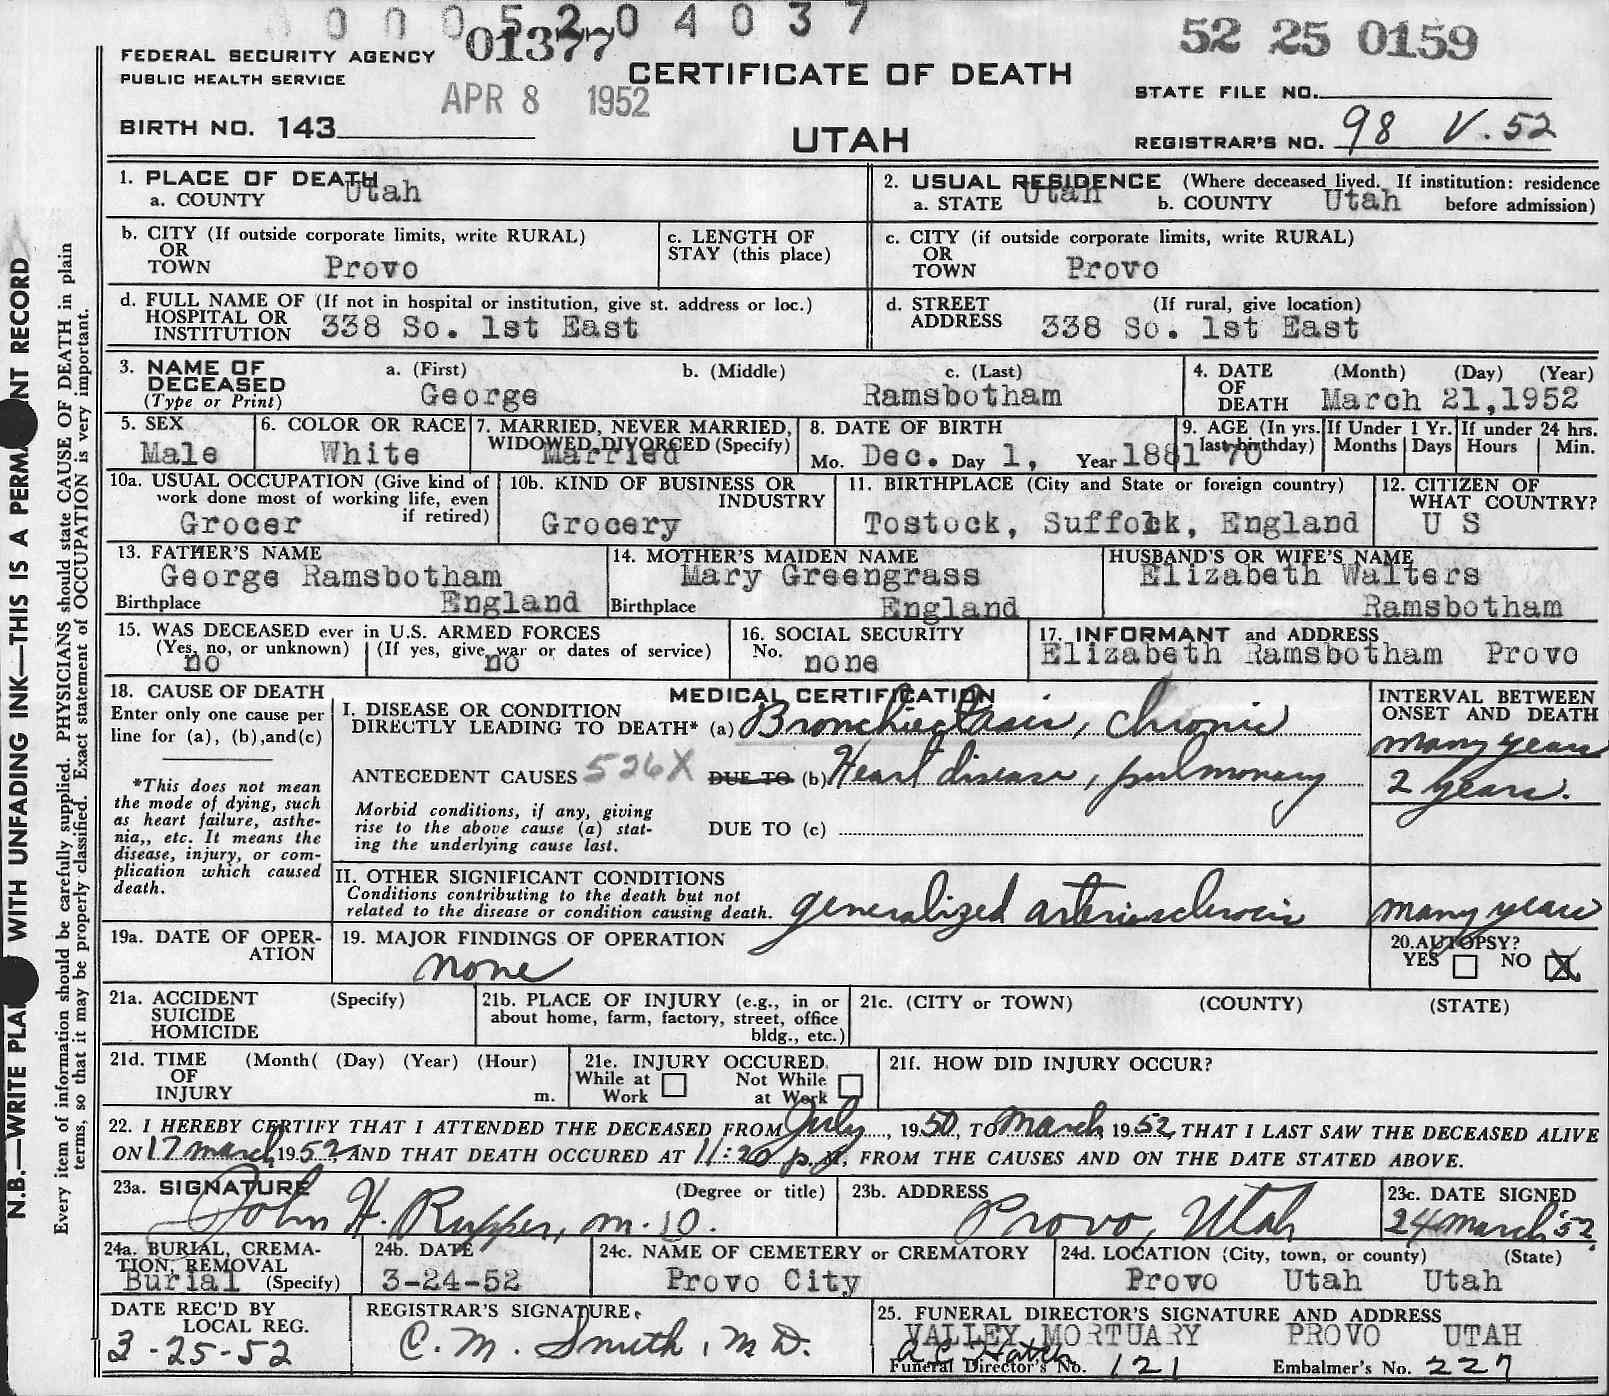 0 0 0 5 2 0 4 0 3 7
01377
52 25 0159
FEDERAL SECURITY AGENCY
PUBLIC HEALTH SERVICE
CERTIFICATE OF DEATH
APR 8 1952
STATE FILE NO.
BIRTH NO. 143
UTAH
REGISTRAR'S NO. 98 V. 52
1. PLACE OF DEATH
a. COUNTY Utah
2. USUAL RESIDENCE (Where deceased lived. If institution: residence before admission)
a. STATE Utah b. COUNTY Utah
b. CITY (If outside corporate limits, write RURAL)
OR
TOWN Provo
c. LENGTH OF
STAY (this place)
c. CITY (if outside corporate limits, write RURAL)
OR
TOWN Provo
d. FULL NAME OF (If not in hospital or institution, give st. address or loc.)
HOSPITAL OR
INSTITUTION 338 So. 1st East
d. STREET (If rural, give location)
ADDRESS 338 So. 1st East
3. NAME OF
DECEASED
(Type or Print)
a. (First) b. (Middle) c. (Last)
George Ramsbotham
4. DATE (Month) (Day) (Year)
OF
DEATH March 21,1952
5. SEX
Male
6. COLOR OR RACE
White
7. MARRIED, NEVER MARRIED,
WIDOWED, DIVORCED (Specify)
Married
8. DATE OF BIRTH
Mo. Dec. Day 1, Year 1881
9. AGE (In yrs.
last birthday)
70
If Under 1 Yr.
Months Days
If under 24 hrs.
Hours Min.
10a. USUAL OCCUPATION (Give kind of
work done most of working life, even
if retired)
Grocer
10b. KIND OF BUSINESS OR
INDUSTRY
Grocery
11. BIRTHPLACE (City and State or foreign country)
Tostock, Suffolk, England
12. CITIZEN OF
WHAT COUNTRY?
U S
13. FATHER'S NAME
George Ramsbotham
Birthplace England
14. MOTHER'S MAIDEN NAME
Mary Greengrass
Birthplace England
HUSBAND'S OR WIFE'S NAME
Elizabeth Walters
Ramsbotham
15. WAS DECEASED ever in U.S. ARMED FORCES
(Yes, no, or unknown) (If yes, give war or dates of service)
no no
16. SOCIAL SECURITY
No. none
17. INFORMANT and ADDRESS
Elizabeth Ramsbotham Provo
18. CAUSE OF DEATH
Enter only one cause per
line for (a), (b),and(c)
*This does not mean
the mode of dying, such
as heart failure, asthe-
nia,, etc. It means the
disease, injury, or com-
plication which caused
death.
MEDICAL CERTIFICATION
I. DISEASE OR CONDITION
DIRECTLY LEADING TO DEATH* (a) Bronchiectasis, chronic
ANTECEDENT CAUSES 526X DUE TO (b) Heart disease, pulmonary
Morbid conditions, if any, giving
rise to the above cause (a) stat-
ing the underlying cause last.
DUE TO (c)
INTERVAL BETWEEN
ONSET AND DEATH
many years
2 years.
II. OTHER SIGNIFICANT CONDITIONS
Conditions contributing to the death but not
related to the disease or condition causing death.
generalized arteriosclerosis
many years
19a. DATE OF OPER-
ATION
19. MAJOR FINDINGS OF OPERATION
none
20.AUTOPSY?
YES NO X
21a. ACCIDENT (Specify)
SUICIDE
HOMICIDE
21b. PLACE OF INJURY (e.g., in or
about home, farm, factory, street, office
bldg., etc.)
21c. (CITY or TOWN) (COUNTY) (STATE)
21d. TIME (Month( (Day) (Year) (Hour)
OF
INJURY m.
21e. INJURY OCCURED
While at Not While
Work at Work
21f. HOW DID INJURY OCCUR?
22. I HEREBY CERTIFY THAT I ATTENDED THE DECEASED FROM July, 1950, TO March, 1952, THAT I LAST SAW THE DECEASED ALIVE
ON 17 march 1952, AND THAT DEATH OCCURED AT 11:20 p. M, FROM THE CAUSES AND ON THE DATE STATED ABOVE.
23a. SIGNATURE (Degree or title)
John H. Rupper, M.D.
23b. ADDRESS
Provo, Utah
23c. DATE SIGNED
24 March '52
24a. BURIAL, CREMA-
TION, REMOVAL
Burial (Specify)
24b. DATE
3-24-52
24c. NAME OF CEMETERY or CREMATORY
Provo City
24d. LOCATION (City, town, or county) (State)
Provo Utah Utah
DATE REC'D BY
LOCAL REG.
3-25-52
REGISTRAR'S SIGNATURE
C. M. Smith, M D.
25. FUNERAL DIRECTOR'S SIGNATURE AND ADDRESS
VALLEY MORTUARY PROVO UTAH
Funeral Director's No. 121 Embalmer's No. 227